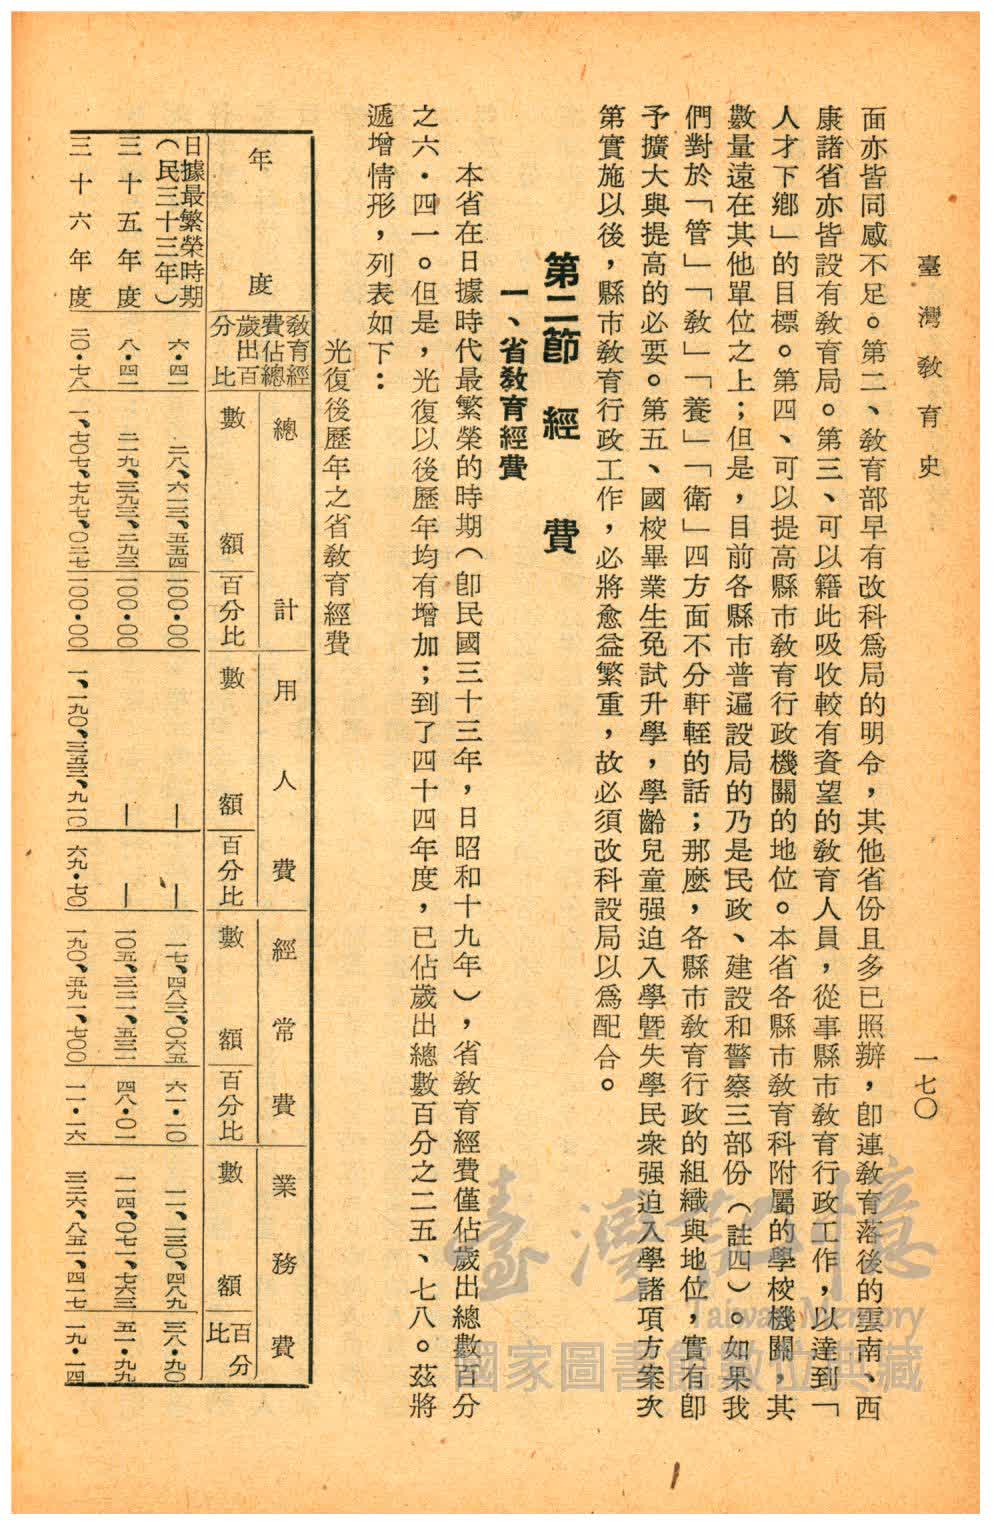 臺灣敎育史
一七〇
面亦皆同感不足。第二、敎育部早有改科爲局的明令，其他省份且多已照辦，卽連敎育落後的雲南、西
康諸省亦皆設有敎育局。第三、可以籍此吸收較有資望的敎育人員，從事縣市敎育行政工作，以達到「
人才下鄕」的目標。第四、可以提高縣市敎育行政機關的地位。本省各縣市敎育科附屬的學校機關，其
數量遠在其他單位之上；但是，目前各縣市普遍設局的乃是民政、建設和警察三部份（註四）。如果我
們對於「管」「敎」「養」「衛」四方面不分軒輊的話；那麼，各縣市敎育行政的組織與地位，實有卽
予擴大與提高的必要。第五、國校畢業生免試升學，學齡兒童强迫入學暨失學民衆强迫入學諸項方案次
第實施以後，縣市敎育行政工作，必將愈益繁重，故必須改科設局以爲配合。
第二節　經　費
一、省敎育經費
本省在日據時代最繁榮的時期（卽民國三十三年，日昭和十九年），省敎育經費僅佔歲出總數百分
之六・四一。但是，光復以後歷年均有增加；到了四十四年度，已佔歲出總數百分之二五、七八。茲將
遞增情形，列表如下：
光復後歷年之省敎育經費
年度
敎育經費佔總歲出百分比
總計
數額
百分比
用人費
數額
百分比
經常費
數額
百分比
業務費
數額
百分比
日據最繁榮時期（民三十三年）
六・四一
二八、六一三、五五四
一〇〇・〇〇
—
—
一七、四八三、〇六五
六一・一〇
一一、一三〇、四八九
三八・九〇
三十五年度
八・四一
二一九、三九三、二九三
一〇〇・〇〇
—
—
一〇五、三二一、五三一
四八・〇一
一一四、〇七一、七六三
五一・九九
三十六年度
二〇・七八
一、七〇七、七九七、〇二七
一〇〇・〇〇
一、一九〇、三五三、九一〇
六九・七〇
一九〇、五九一、七〇〇
一一・一六
三二六、八五一、四一七
一九・一四
臺灣記憶
Taiwan Memory
國家圖書館數位典藏